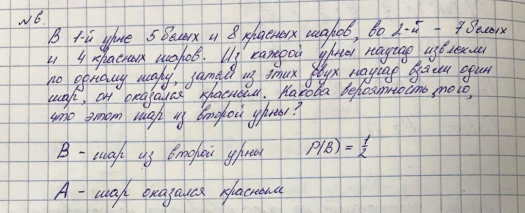 №6.
В 1-й урне 5 белых и 8 красных шаров, во 2-й - 7 белых
и 4 красных шаров. Из каждой урны наугад извлекли
по одному шару, затем из этих двух наугад взяли один
шар, он оказался красным. Какова вероятность, того,
что этот шар из второй урны?
B - шар из второй урны P(B) = 1/2
A - шар оказался красным